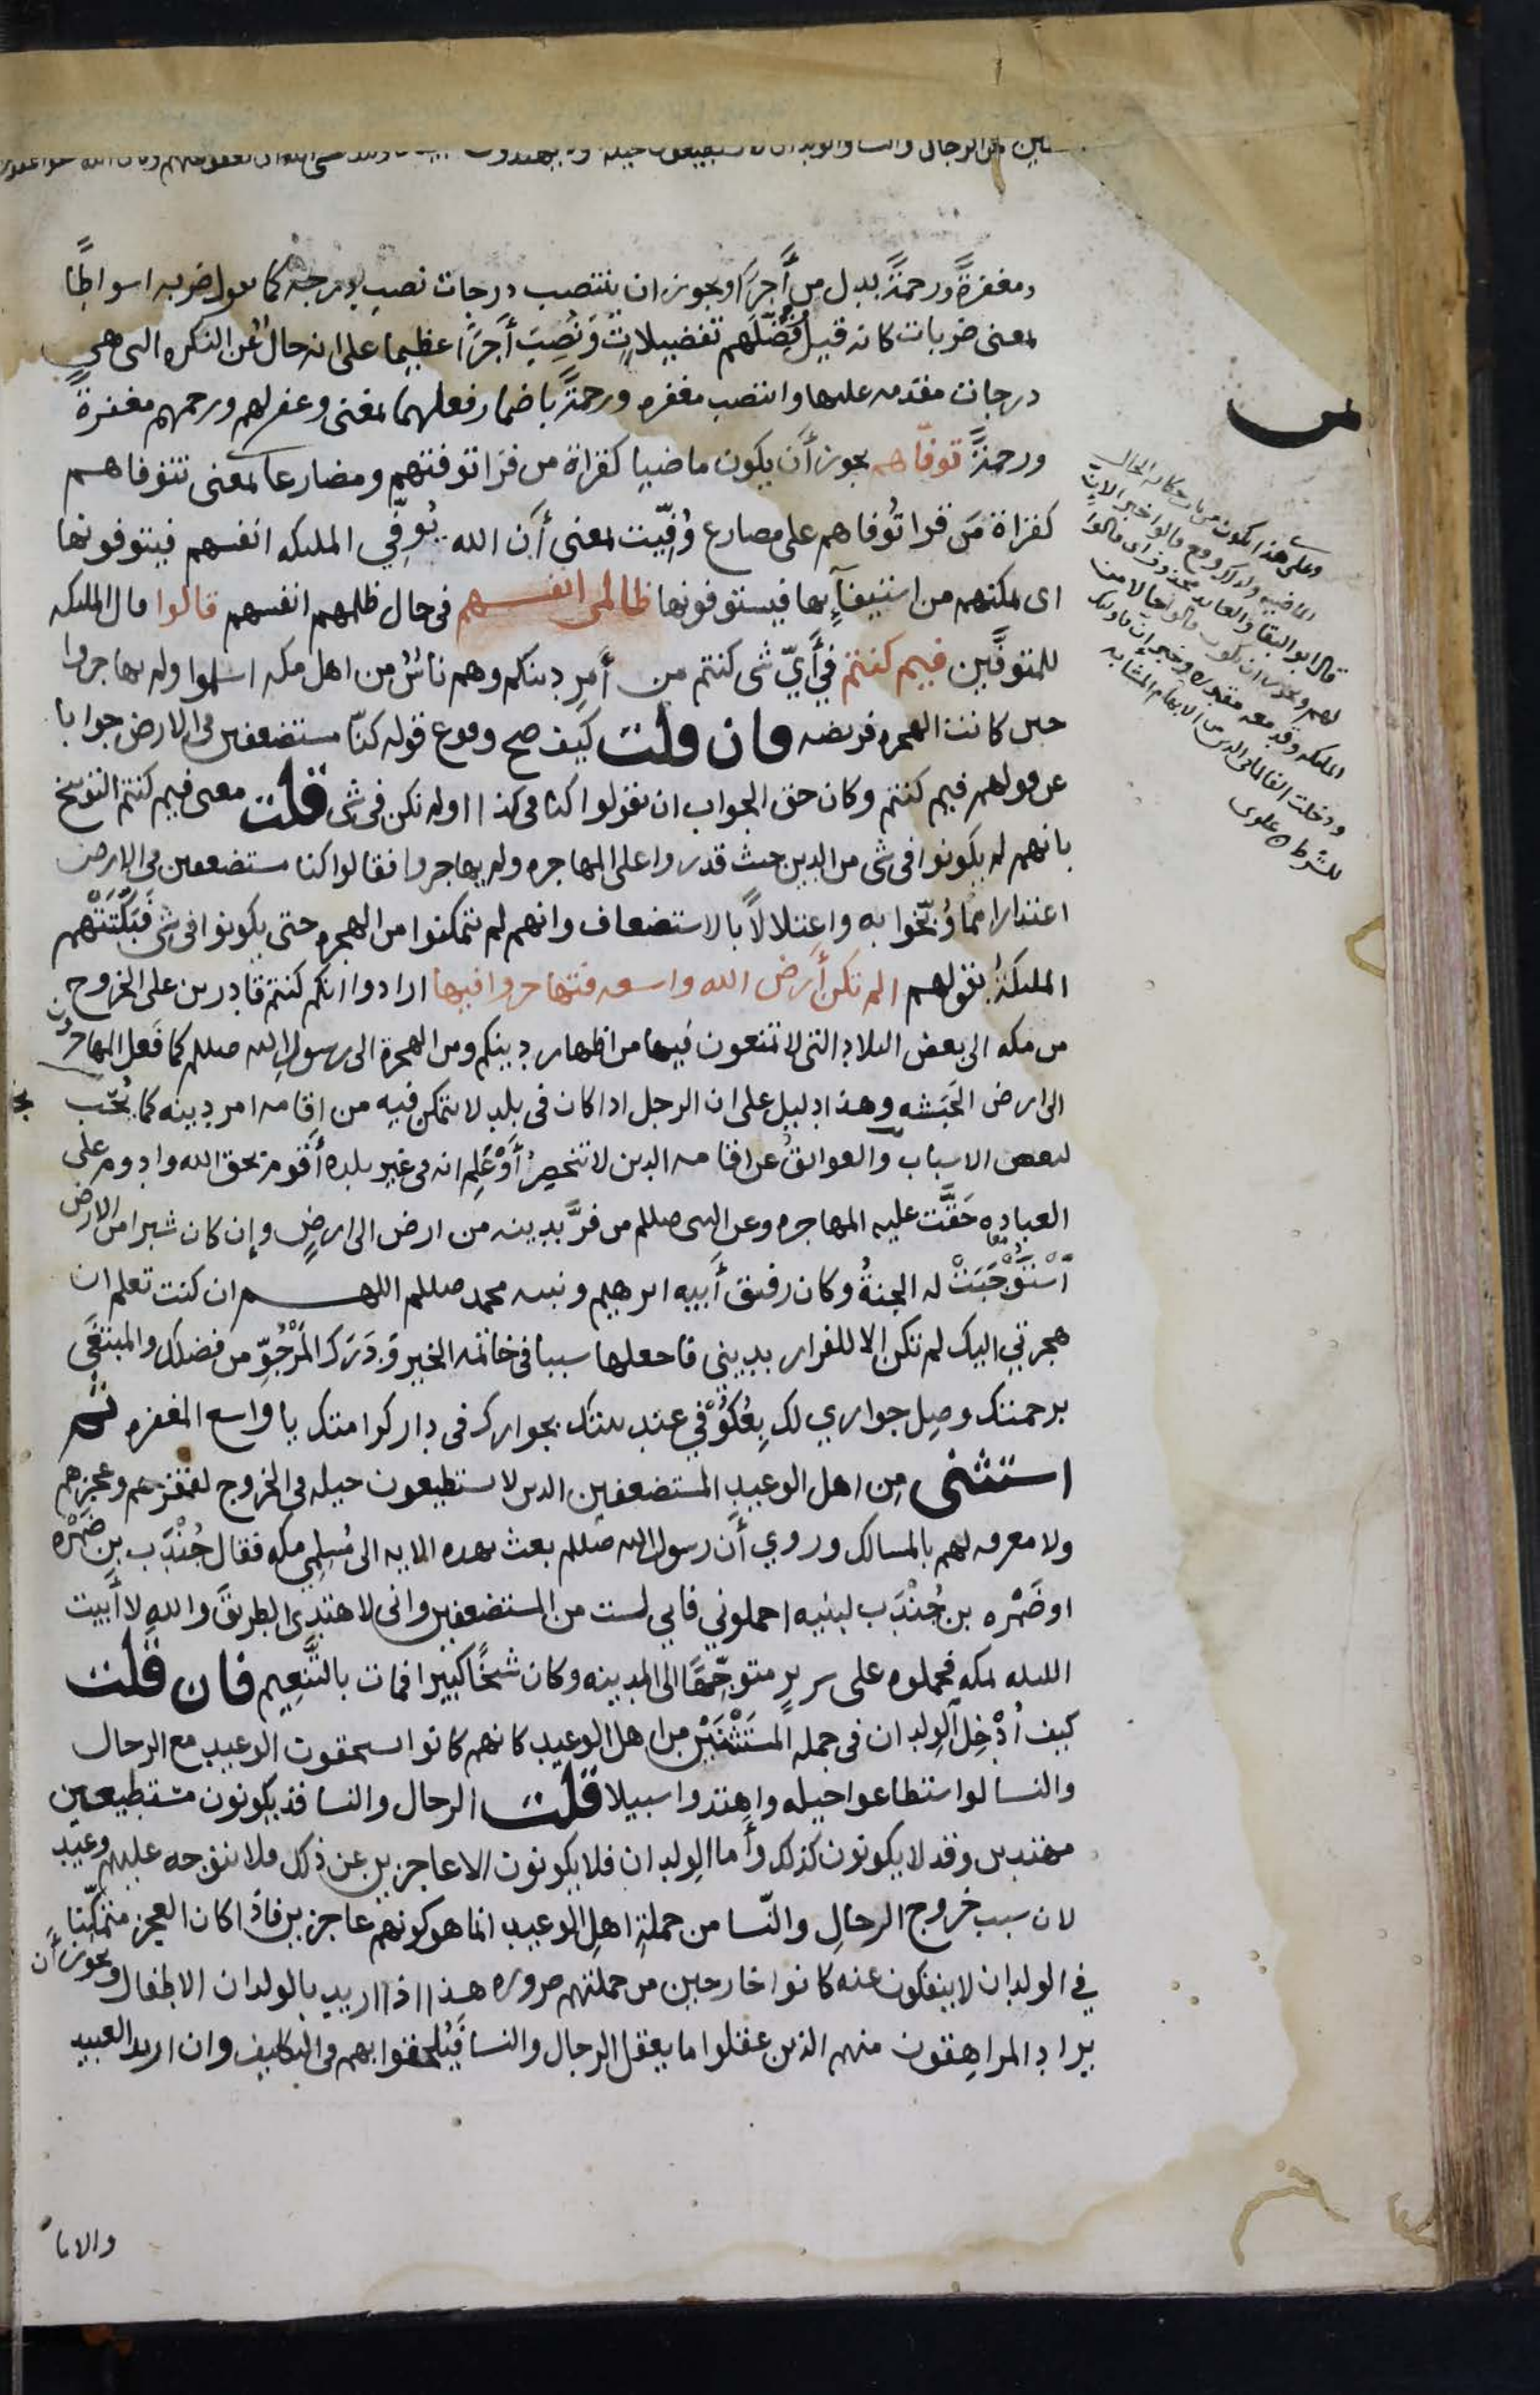 ومغفرةً ورحمةً بدل من أجرًا ويجوز ان ينتصب درجات نصب درجة كما تقول ضربه اسواطًا
بمعنى ضربات كانه قيل فضّلهم تفضيلاتٍ ونُصِبَ أجرًا عظيما على انه حالٌ عن النكره التى هى
درجات مقدمه عليها وانتصب مغفره ورحمةً باضمار فعلهما بمعنى وغفر لهم ورحمهم مغفرةً
ورحمةً توفّاهم يجوز أن يكون ماضيا كقراة من قرا توفتهم ومضارعا بمعنى تتوفاهم
كقراة مَن قرا تُوفاهم على مضارع وُفِّيت بمعنى أن الله يُوَفِّي الملىكه انفسهم فيتوفونها
اى يمكنهم من استيفآيها فيستوفونها ظالمى انفسهم فى حال ظلمهم انفسهم قالوا قال الملىكه
للمتوفَّين فيم كنتم في أَيّ شى كنتم من أمر دينكم وهم ناسٌ من اهل مكه اسلموا ولم يهاجروا
حىں كانت الهجره فريضه فان قلت كيف صح وقوع قوله كنّا مستضعفين فى الارض جوابا
عن قولهم فيم كنتم وكان حق الجواب ان يقولوا كنا فى كذا اولم نكن فى شى قلت معنى فيم كنتم التوبيخ
بانهم لم يكونوا فى شى من الدين حيث قدروا على المهاجره ولم يهاجروا فقالوا كنا مستضعفين فى الارض
اعتذارا مما وُبِّخوا به واعتلالاً بالاستضعاف وانهم لم يتمكنوا من الهجره حتى يكونوا فى شى فَبَكَّتَتْهم
الملىكةُ بقولهم الم تكن أرض الله واسعه فتهاجروا فيها ارادوا انكم كنتم قادرين على الخروج
من مكه الى بعض البلاد التى لا تمنعون فيها من اظهار دينكم ومن الهجرة الى رسول الله صللم كما فعل المهاجرون
الى ارض الحَبَشه وهذا دليل على ان الرجل اذا كان فى بلد لا يتمكن فيه من اقامه امر دينه كما يُحّب
لبعض الاسباب والعوائقُ عن اقامه الدين لا تنحصِرُ أوْ عَلِم انه فى غير بلده أقوم بحق الله وادوم على
العباده حَقَّت عليه المهاجره وعن النبى صللم من فرَّ بدينه من ارض الى ارضٍ وإن كان شبرا من الارض
آسْتَوْجَبَتْ له الجنةُ وكان رفيق أَبيه ابرهيم ونبيه محمد صللم اللهم ان كنت تعلم ان
هجرتي اليك لم تكن الا للفرار بديني فاجعلها سببا فى خاتمه الخير وَدَرَك المَرْجُوِّ من فضلك والمبتغَى
برحمتك وصِل جواري لك بِعُكُوْفي عند بيتك بجوارك فى دار كرامتك يا واسع المغفره ثم
استثنى مِن اهل الوعيد المستضعفين الذين لا يستطيعون حيله فى الخروج لفقرهم وعجزهم
ولا معرفه لهم بالمسالك وروي أن رسول الله صللم بعث بهذه الايه الى مُسلِمى مكه فقال جُنْدَب بن ضَمْره
او ضَمْره بن جُنْدَب لبنيه احملوني فاني لست من المستضعفين وانى لاهتدى الطريقَ والله لا أبيت
الليله بمكه فحملوه على سريرٍ متوجِّهًا الى المدينه وكان شيخًا كبيرا فمات بالتَّنعِيم فان قلت
كيف أُدْخِل الوِلدان فى جمله المستَثْنَيْن من اهل الوعيد كانهم كانوا يستحقون الوعيد مع الرجال
والنسا لو استطاعوا حيله واهتدوا سبيلا قلت الرجال والنسا قد يكونون مستطيعين
مهتدين وقد لا يكونون كذلك وأما الوِلدان فلا يكونون الا عاجزين عن ذلك فلا يتوجه عليهم وعيد
لان سبب خروج الرجال والنّسا من جملةِ اهلِ الوعيد انما هو كونهم عاجزين فاذا كان العجز متمكّنا
في الولدان لا ينفكون عنه كانوا خارجين من جملتهم ضروره هذا اذا اريد بالولدان الاطفال ويجوز أن
يراد المراهِقون منهم الذين عقلوا ما يعقل الرجال والنسا فيُلحقوا بهم فى التكليف وان اريد العبيد
والاما
وعلى هذا يكون من باب حكاية الحال
الماضيه ولذلك وقع قالوا خبر الان
قال ابو البقا والعايد محذوف اى قالوا
لهم ويجوز ان يكون قالوا حالا من
الملىكه وقد معه مقدره وخبر ان فاولىك
ودخلت الفا لما فى الذين من الابهام المشابه
للشرط علوى